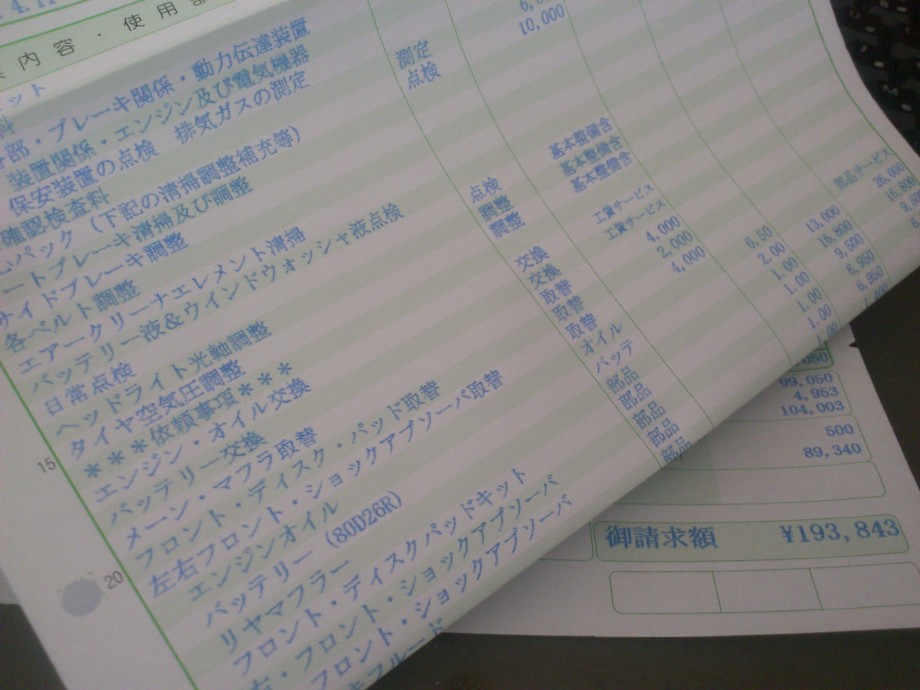 4.11
内容・使用部
ット
料
部・ブレーキ関係・動力伝達装置
装置関係・エンジン及び電気機器 測定 10,000
保安装置の点検 排気ガスの測定 点検
確認検査料
パック（下記の清掃調整補充等）
ートブレーキ清掃及び調整 点検 基本整備合
サイドブレーキ調整 調整 基本整備合
各ベルト調整 調整 基本整備合
エアークリーナエレメント清掃
バッテリー液&ウインドウオッシャ液点検
日常点検
ヘッドライト光軸調整
タイヤ空気圧調整
***依頼事項***
エンジン・オイル交換 交換 工賃サービス
バッテリー交換 交換 工賃サービス
メーン・マフラ取替 取替 4,000
フロント・ディスク・パッド取替 取替 2,000
左右フロント・ショックアブソーバ取替 取替 4,000
エンジンオイル オイル 6.50 部品サービス
バッテリー (80D26R) バッテ 2.00 13,000
リヤマフラー 部品 1.00
フロント・ディスクパッドキット 部品 1.00 9,500
右・フロント・ショックアブソーバ 部品 1.00
フロント・ショックアブソーバ 部品 1.00
フルード
15
20
99,050
4,953
104,003
500
89,340
御請求額 ¥193,843